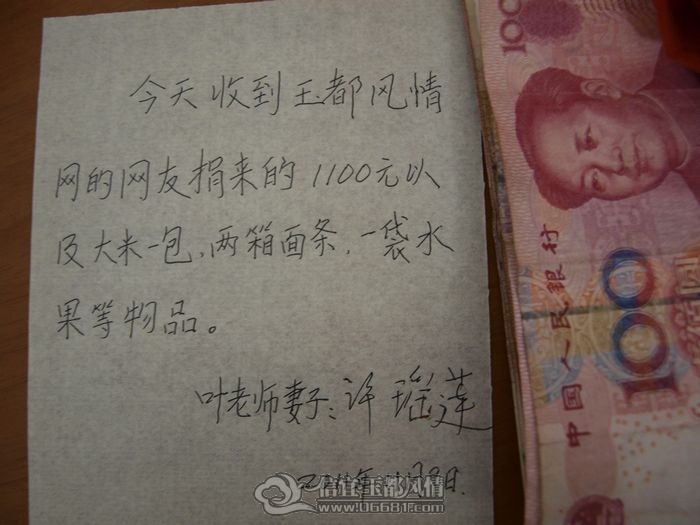 今天收到玉都风情
网的网友捐来的1100元以
及大米一包、两箱面条、一袋水
果等物品。
叶老师妻子：许瑶莲
信宜玉都风情
www.06681.com
100
中国人民銀行
100